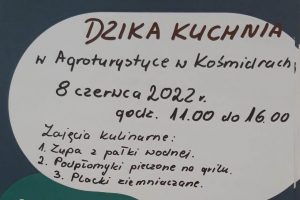 DZIKA KUCHNIA
w Agroturystyce w Kośmidrach,
8 czerwca 2022 r.
godz. 11.00 do 16.00
Zajęcia kulinarne:
1. Zupa z pałki wodnej.
2. Podpłomyki pieczone na grilu.
3. Placki ziemniaczane.